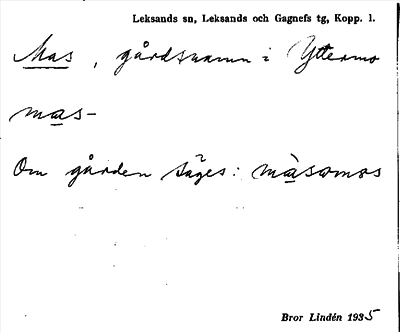 Leksands sn, Leksands och Gagnefs tg, Kopp. l.
Mas, gårdsnamn i Yttermo
mas-
Om gården säges: màsomos
Bror Lindén 1935